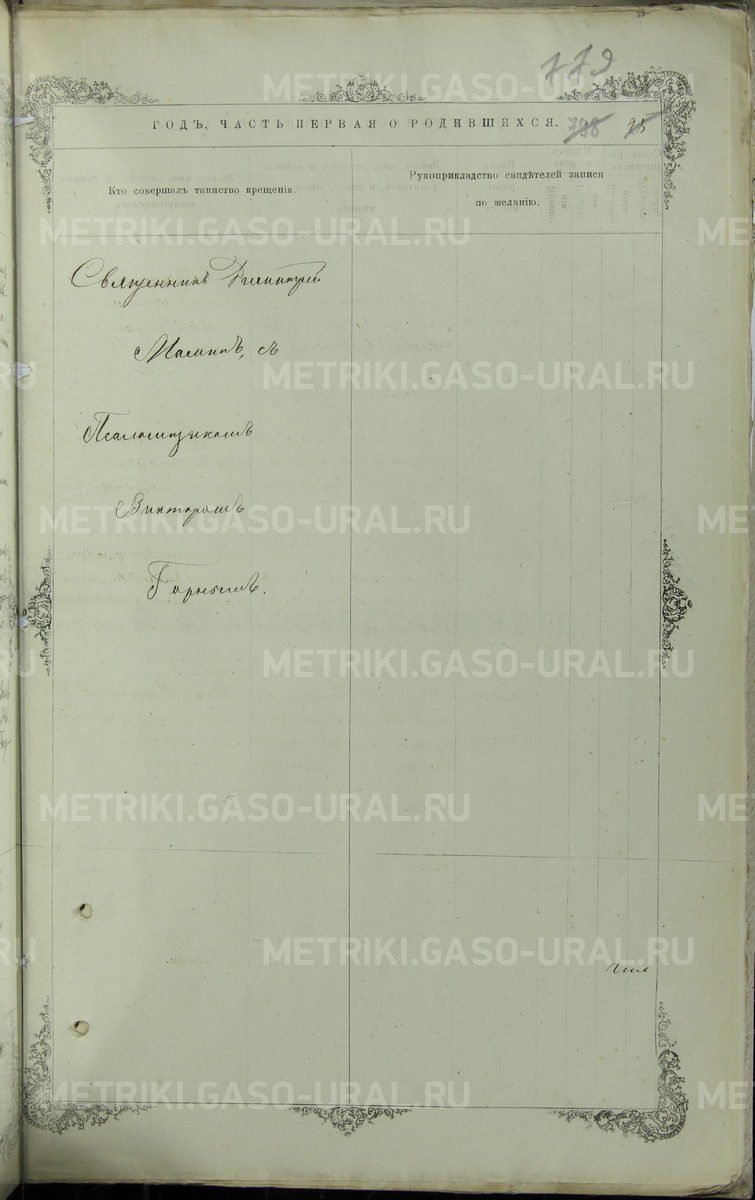 779
ГОДЪ, ЧАСТЬ ПЕРВАЯ О РОДИВШИХСЯ. 798 95
Кто совершалъ таинство крещенія.
Рукоприкладство свидѣтелей записи
по желанію.
Священникъ Димитрій
Малинъ, съ
Псаломщикомъ
Викторомъ
Горныхъ.
METRIKI.GASO-URAL.RU